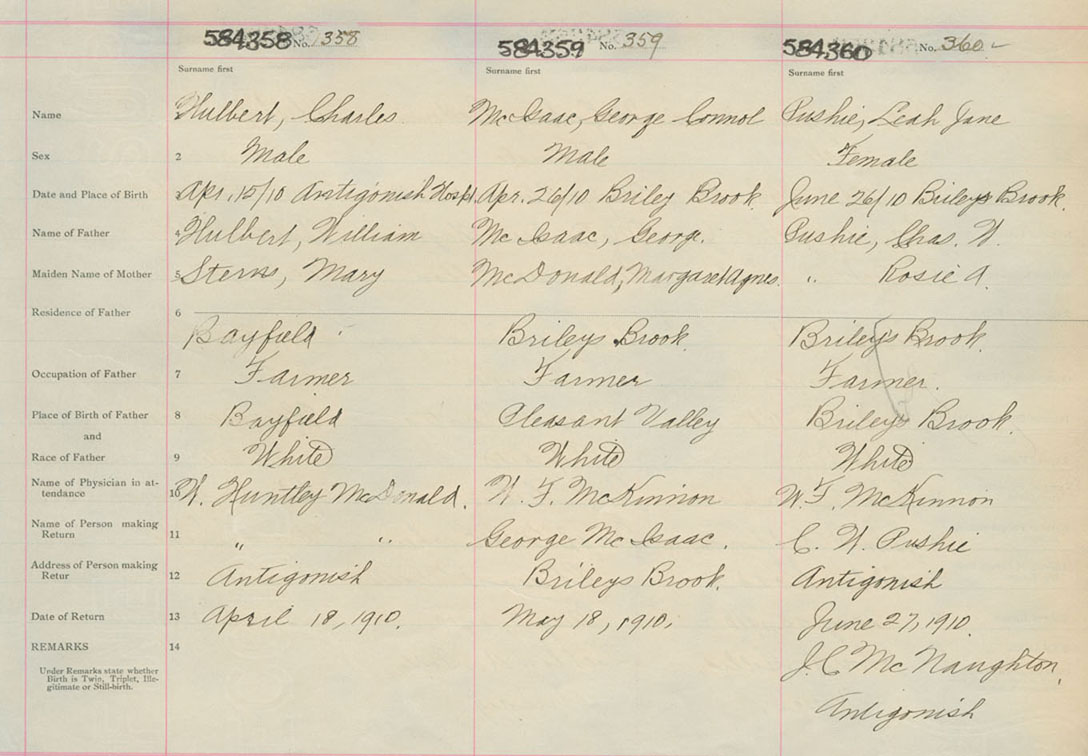 584358 No. 358 584359 No. 359 584360 No. 360
Surname first Surname first Surname first
Name Hulbert, Charles McIsaac, George Connol Pushie, Leah Jane
Sex 2 Male Male Female
Date and Place of Birth 3 Apr. 15/10 Antigonish Hospt Apr. 26/10 Briley Brook. June 26/10 Brileys Brook.
Name of Father 4 Hulbert, William McIsaac, George. Pushie, Chas. W.
Maiden Name of Mother 5 Sterns, Mary McDonald, Margaret Agnes. " Rosie A.
Residence of Father 6
Bayfield Brileys Brook. Brileys Brook.
Occupation of Father 7 Farmer Farmer Farmer.
Place of Birth of Father 8 Bayfield Pleasant Valley Brileys Brook.
and
Race of Father 9 White White White
Name of Physician in at-
tendance 10 W. Huntley McDonald. W. F. McKinnon W. F. McKinnon
Name of Person making
Return 11 " " George McIsaac. C. W. Pushie
Address of Person making
Retur 12 Antigonish Brileys Brook. Antigonish
Date of Return 13 April 18, 1910. May 18, 1910. June 27, 1910.
REMARKS 14 J. C. McNaughton,
Under Remarks state whether
Birth is Twin, Triplet, Ille-
gitimate or Still-birth.
Antigonish